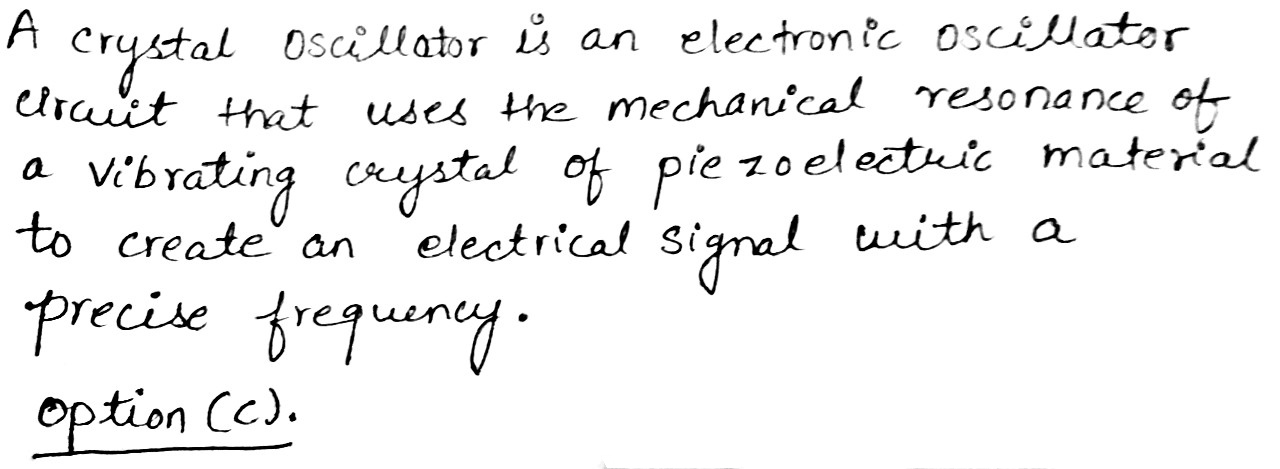 A crystal oscillator is an electronic oscillator
circuit that uses the mechanical resonance of
a vibrating crystal of piezoelectric material
to create an electrical signal with a
precise frequency.
option (c).